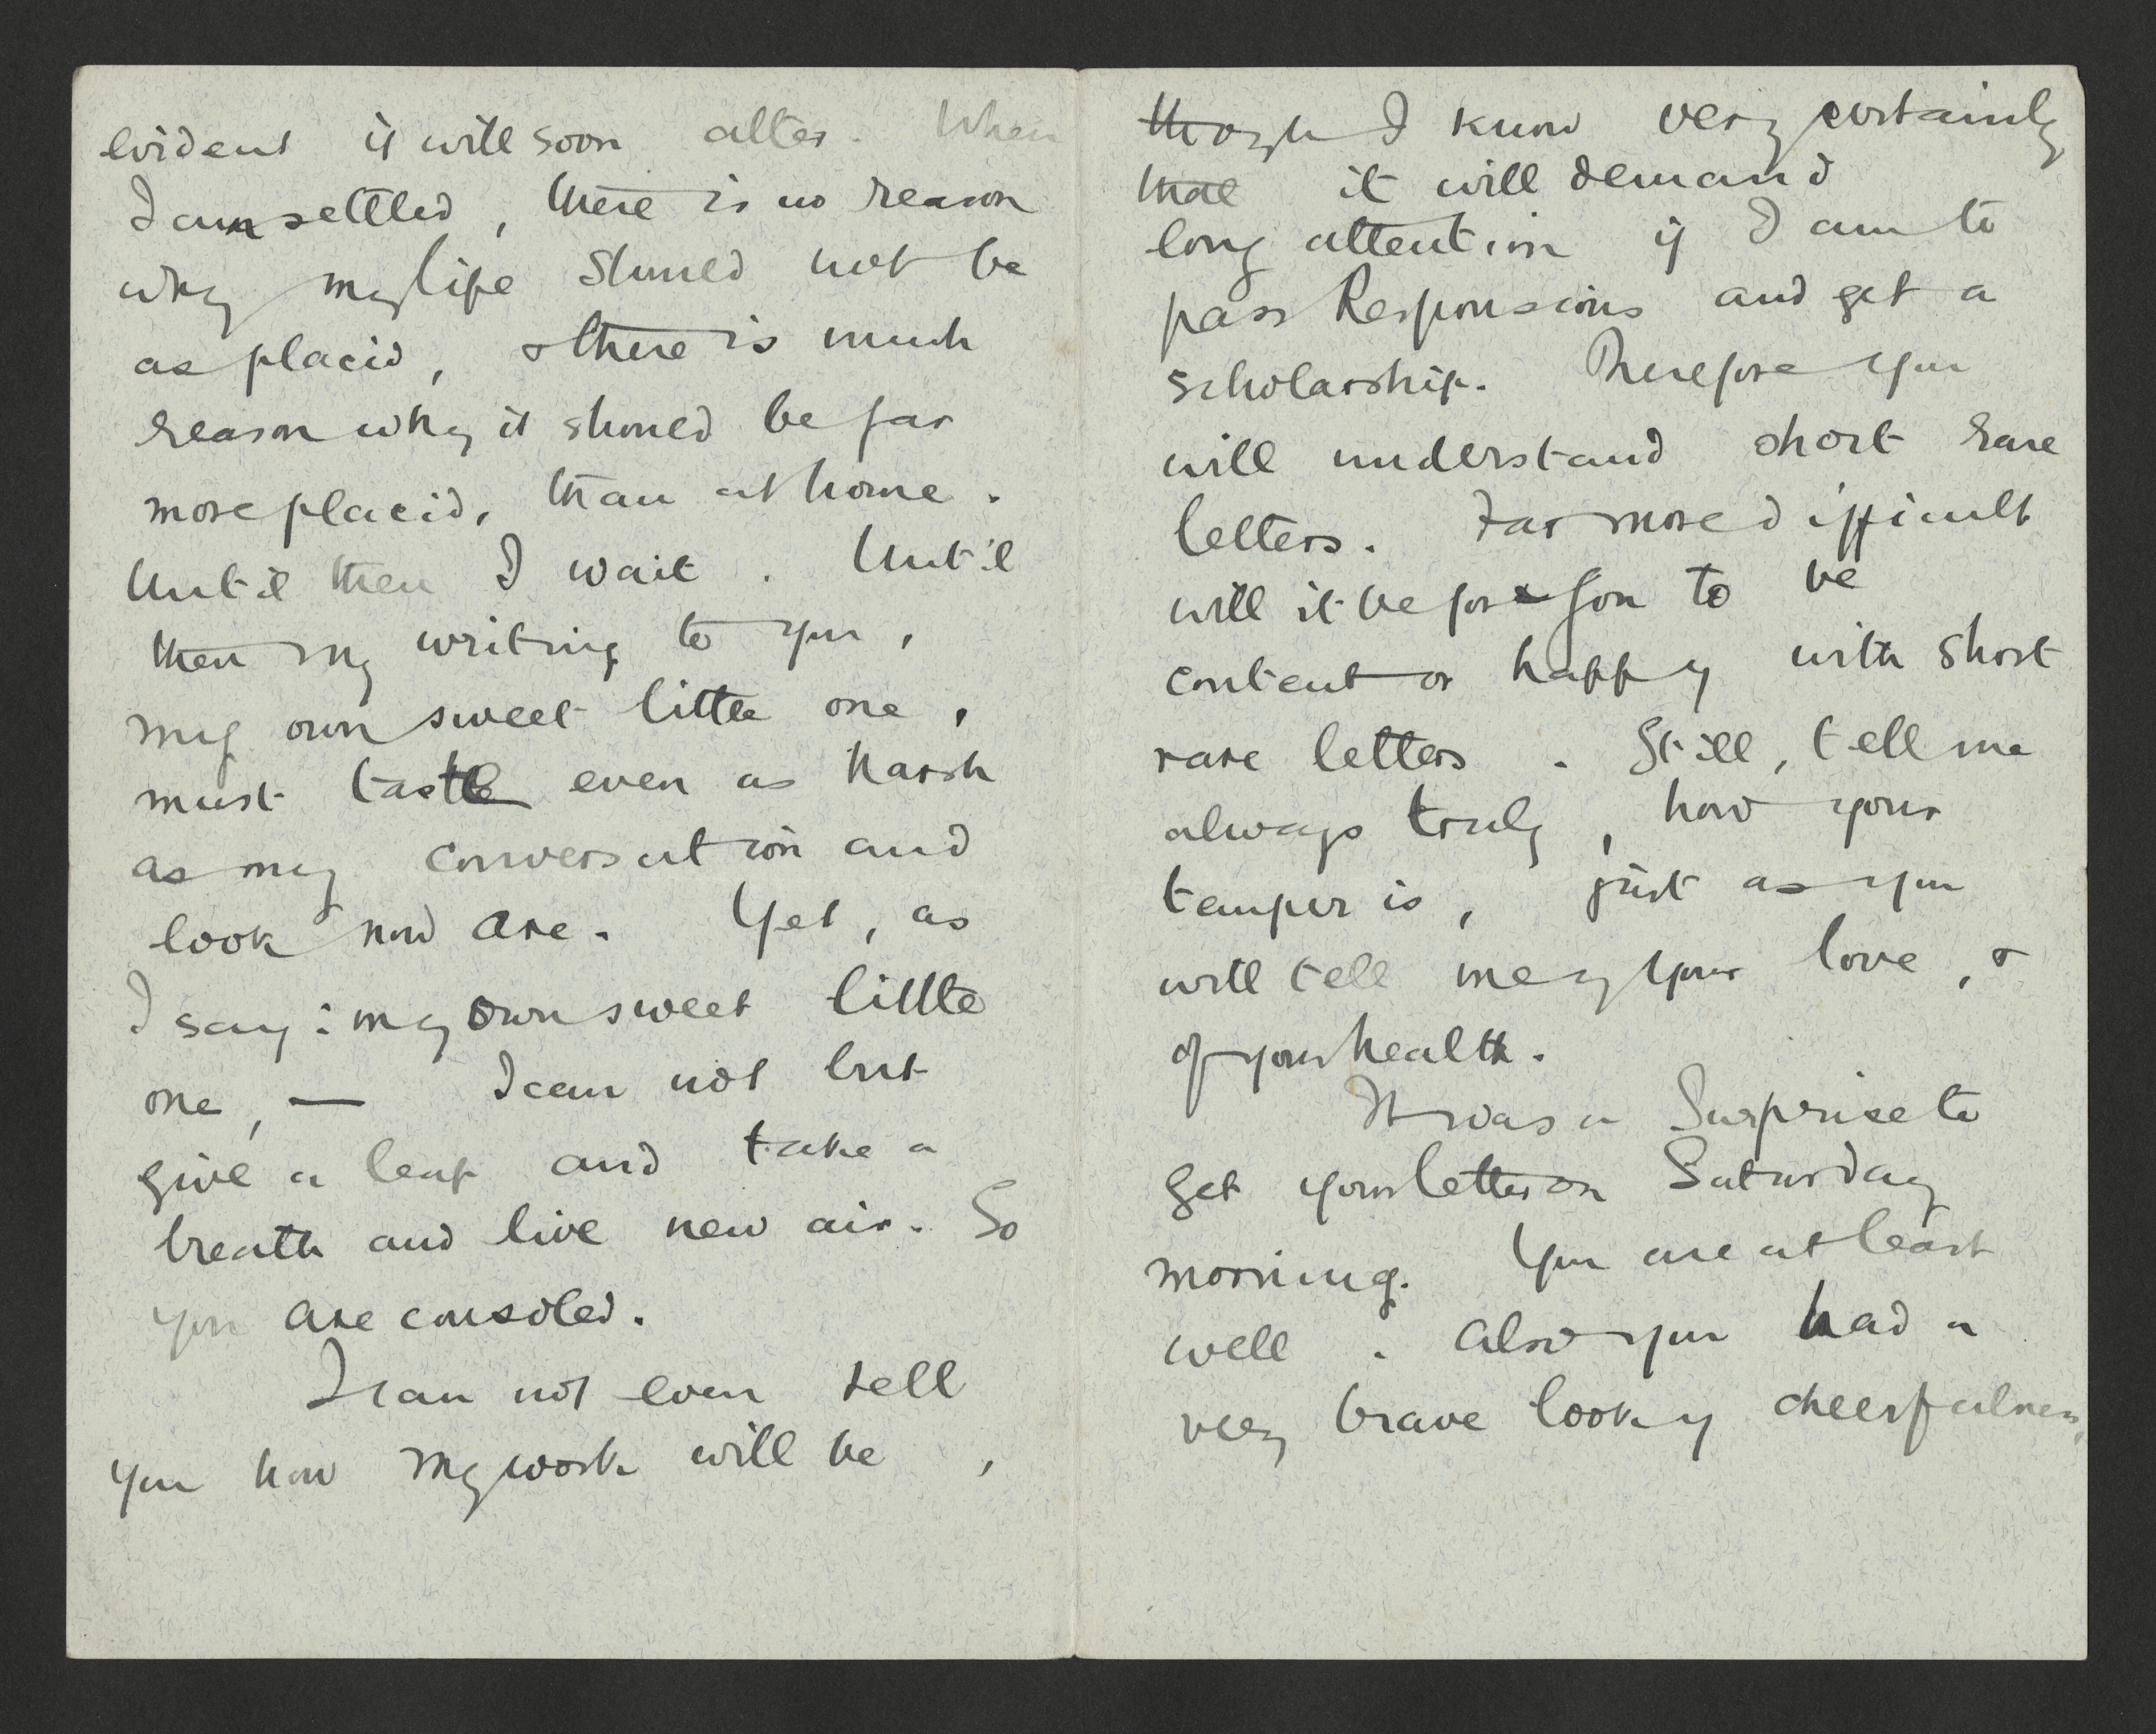 evident it will soon alter. When
I am settled, there is no reason
why my life should not be
as placid, & there is much
reason why it should be far
more placid, than at home.
Until then I wait. Until
then my writing to you,
my own sweet little one,
must taste even as harsh
as my conversation and
look now are. Yet, as
I say: my own sweet little
one, — I can not but
give a leap and take a
breath and live new air. So
you are consoled.
I can not even tell
you how my work will be,
though I know very certainly
that it will demand
long attention if I am to
pass Responsions and get a
scholarship. Therefore you
will understand short rare
letters. Far more difficult
will it be for you to be
content or happy with short
rare letters. Still, tell me
always truly, how your
temper is, just as you
will tell me of your love, &
of your health.
It was a Surprise to
get your letter on Saturday
morning. You are at least
well. Also you had a
very brave look of cheerfulness,